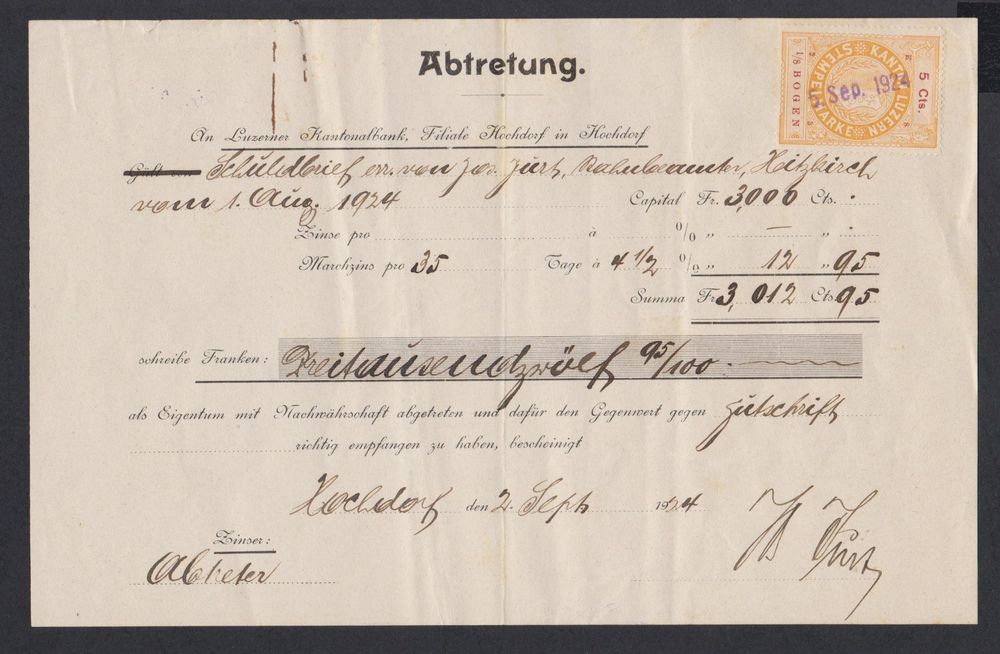 Abtretung.
5 Cts. KANTON LUZERN STEMPELMARKE 1/8 BOGEN
Sep. 1924
An Luzerner Kantonalbank, Filiale Hochdorf in Hochdorf
Gült von Schuldbrief err. von Jos. Jurt, Bahnbeamter, Hitzkirch
vom 1. Aug. 1924 Capital Fr. 3,000 Cts. .
Zinse pro à % " — " .
Marchzins pro 35 Tage à 4 1/2 % " 12 " 95
Summa Fr. 3,012 Cts. 95
schreibe Franken: Dreitausendzwölf 95/100.
als Eigentum mit Nachwährschaft abgetreten und dafür den Gegenwert gegen Gutschrift
richtig empfangen zu haben, bescheinigt
Hochdorf den 2. Sept. 1924
Zinser:
Jurt